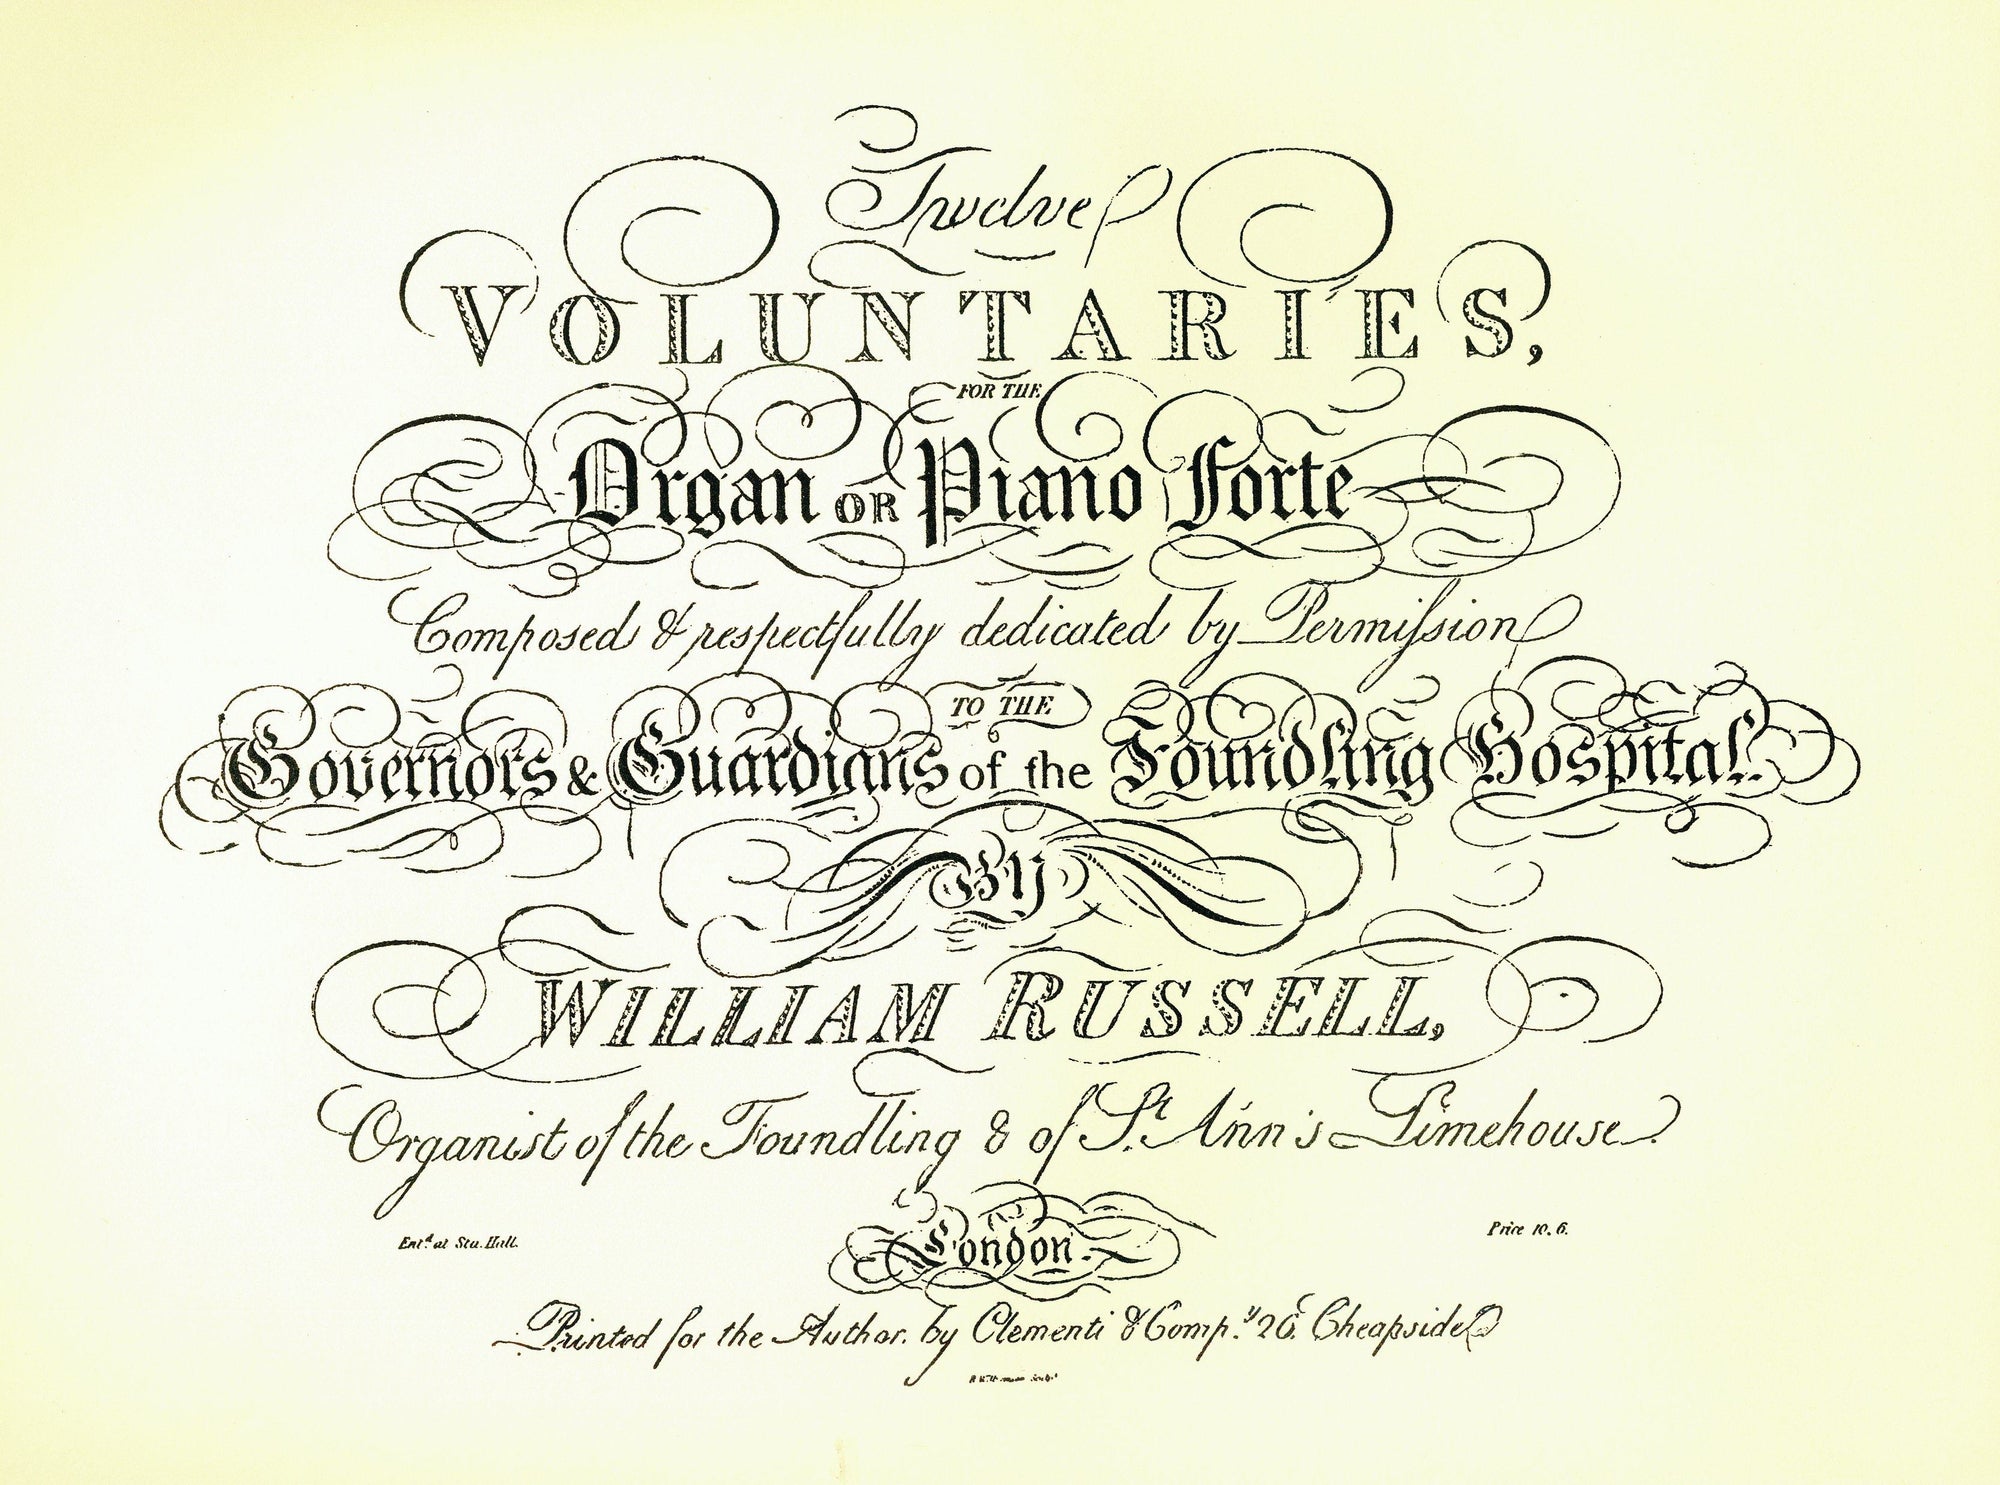 Twelve
VOLUNTARIES,
FOR THE
Organ OR Piano Forte
Composed & respectfully dedicated by Permiſsion
TO THE
Governors & Guardians of the Foundling Hospital.
By
WILLIAM RUSSELL,
Organist of the Foundling & of St. Ann's Limehouse.
Entd. at Sta. Hall.
Price 10.6.
London.
Printed for the Author. by Clementi & Compy. 26. Cheapside